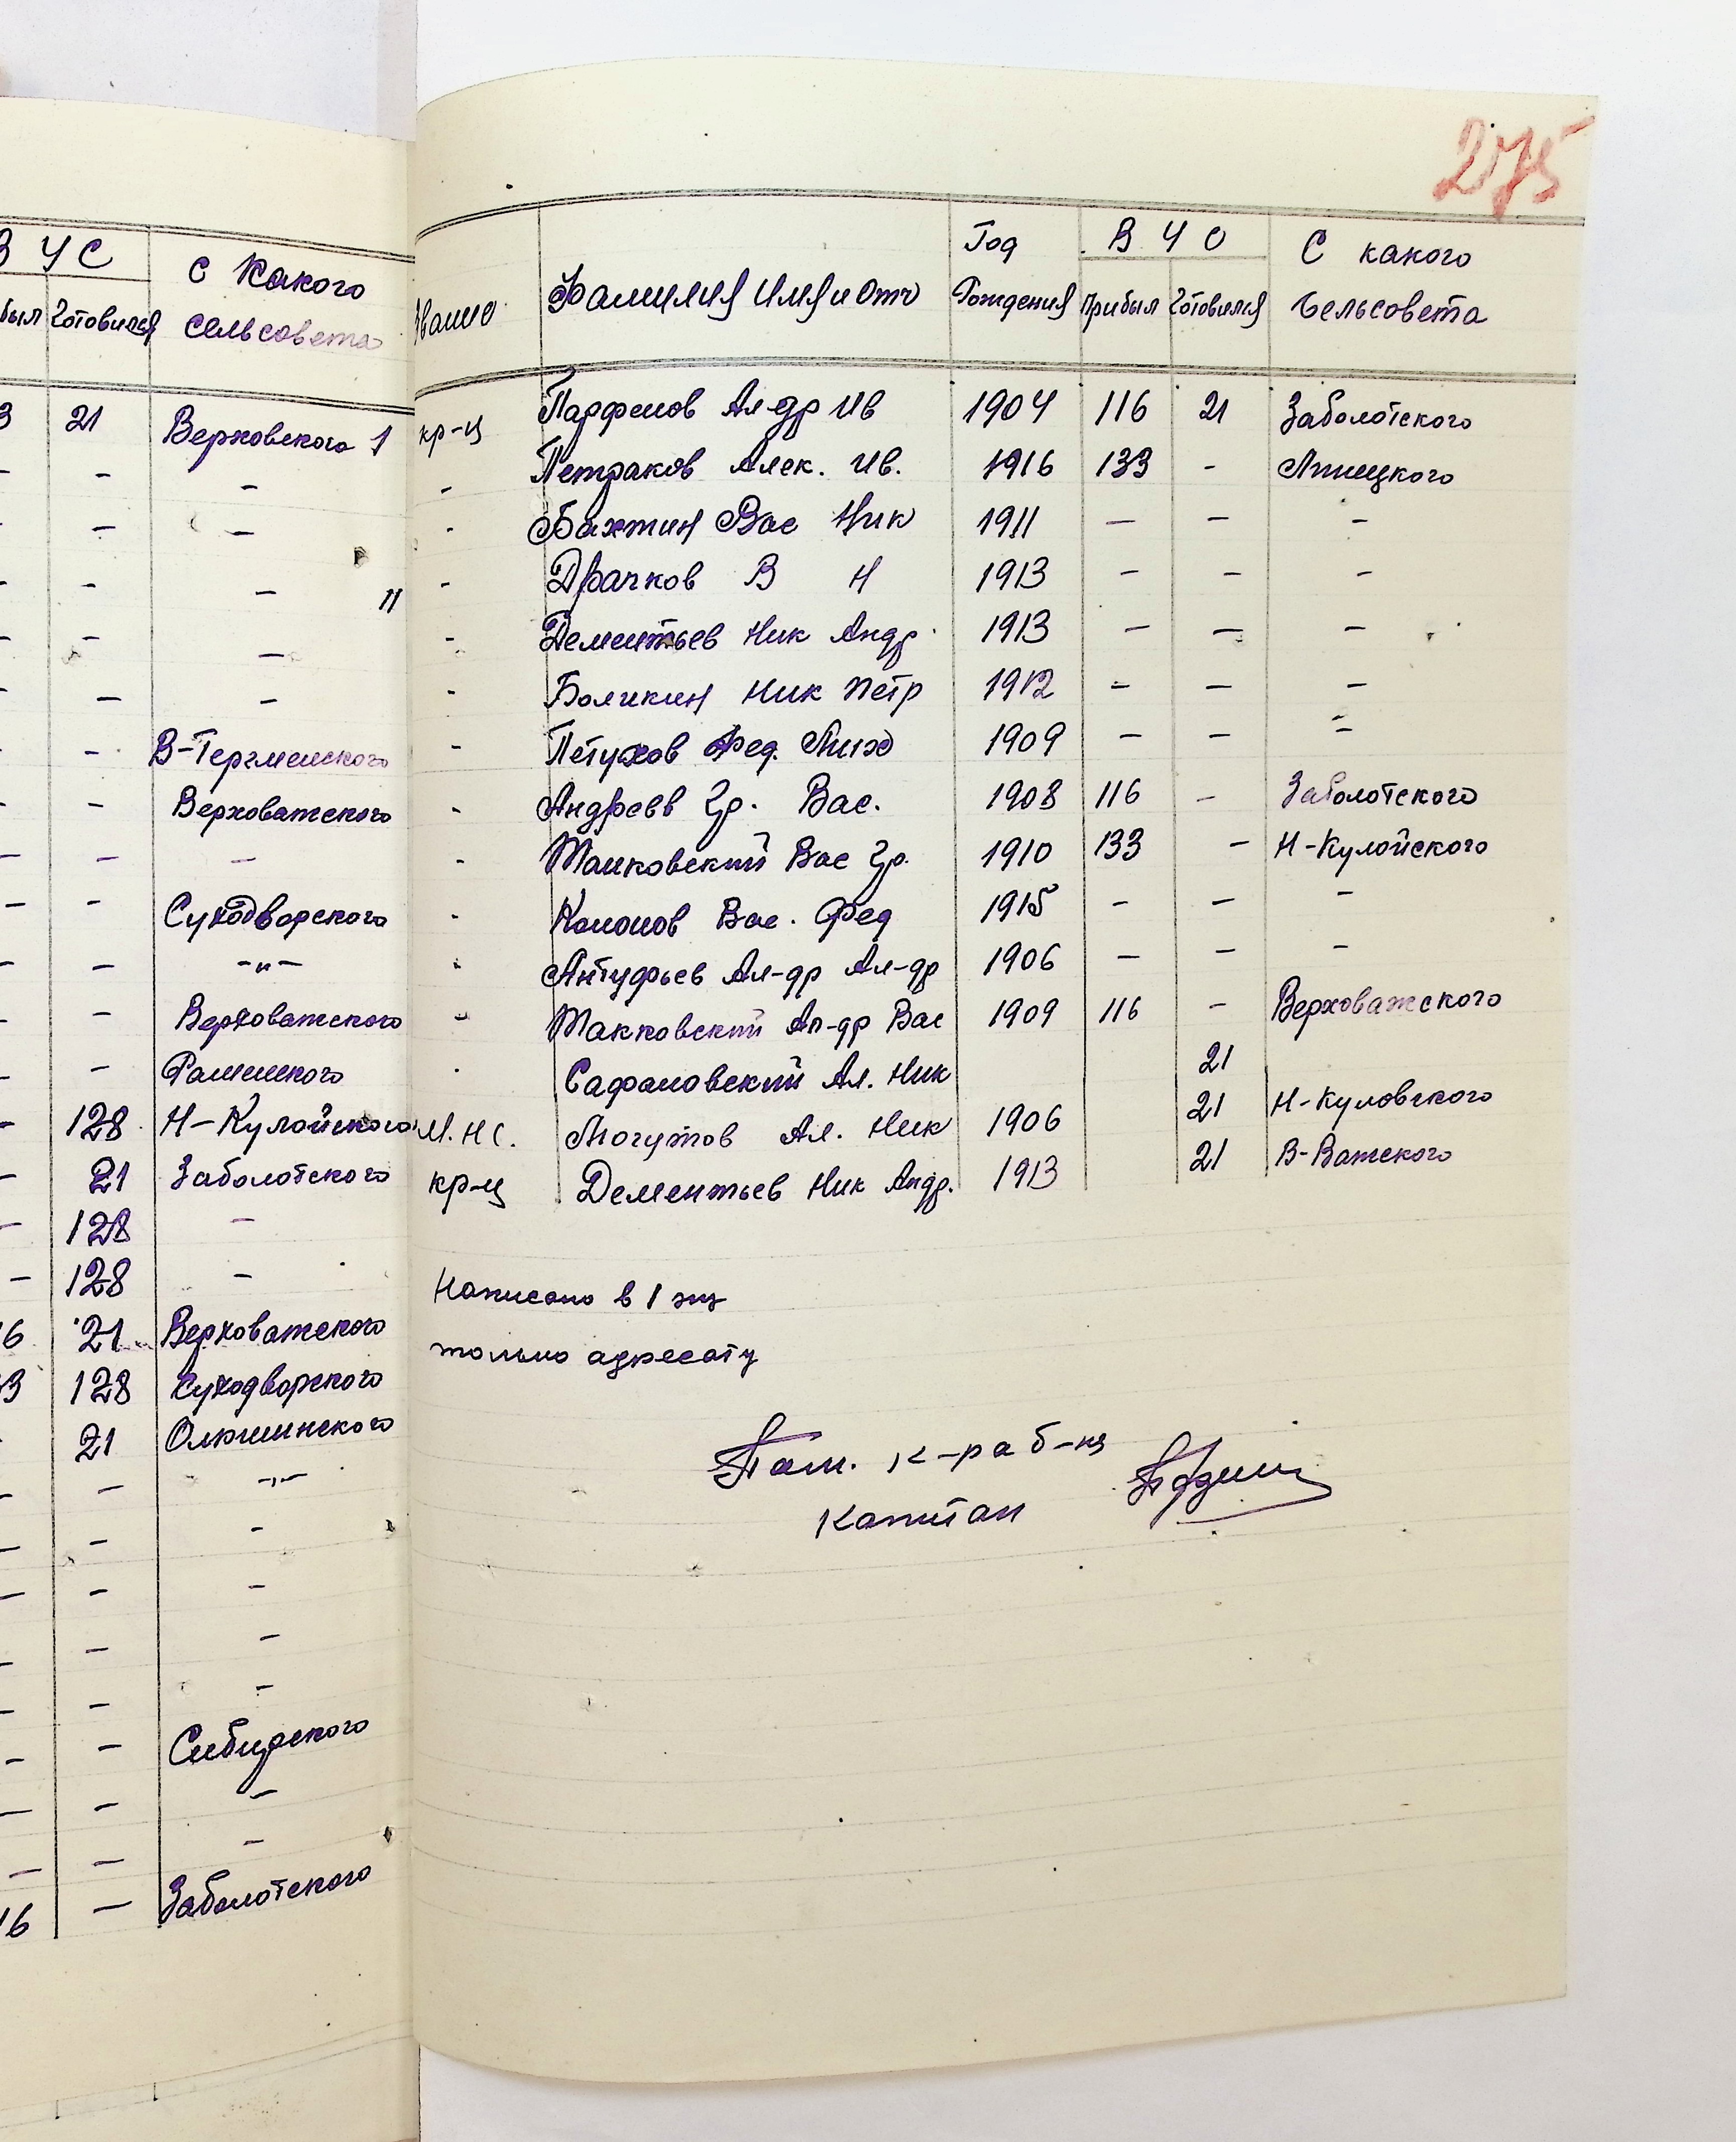 275
В У С
с какого
был готовился сельсовета
3 21 Верховского 1
- - -
- - -
- - - 11
- - -
- - -
- - В-Термеиского
- - Верховатского
- - -
- - Суходворского
- - -"-
- - Верховатского
-
- 128 Н-Кулойского
- 21 Заболотского
- 128 -
- 128 -
16 21 Верховатского
33 128 Суходворского
- 21 Олюшинского
- - -"-
- - -
- - -
- - -
- - -
- - Сибирского
- - -
- - -
16 - Заболотского
Звание Фамилия Имя и Отч Год Рождения В У С С какого
Прибыл Готовился Сельсовета
кр-ц Парфенов Ал-др Ив 1904 116 21 Заболотского
- Петраков Алек. Ив. 1916 133 - Липецкого
- Бахтин Вас Ник 1911 - - -
- Драчков В Н 1913 - - -
- Дементьев Ник Андр. 1913 - - -
- Боликин Ник Петр 1912 - - -
- Петухов Фед. Мих 1909 - - -
- Андреев Гр. Вас. 1908 116 - Заболотского
- Маковский Вас Гр. 1910 133 - Н-Кулойского
- Кононов Вас. Фед 1915 - - -
- Антуфьев Ал-др Ал-др 1906 - - -
- Макковский Ал-др Вас 1909 116 - Верховажского
Сафоновский Ал. Ник 21
М.Н.С. Могутов Ал. Ник 1906 21 Н-Куловского
кр-ц Дементьев Ник Андр. 1913 21 В-Ватского
Написано в 1 экз
только адресату
Пом. к-ра б-на
Капитан